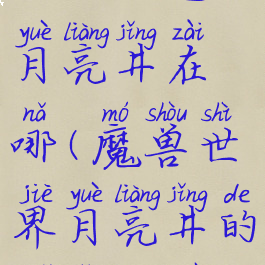 yuè liàng jǐng zài
月亮井在
nǎ mó shòu shì
哪(魔兽世
jiè yuè liàng jǐng de
界月亮井的